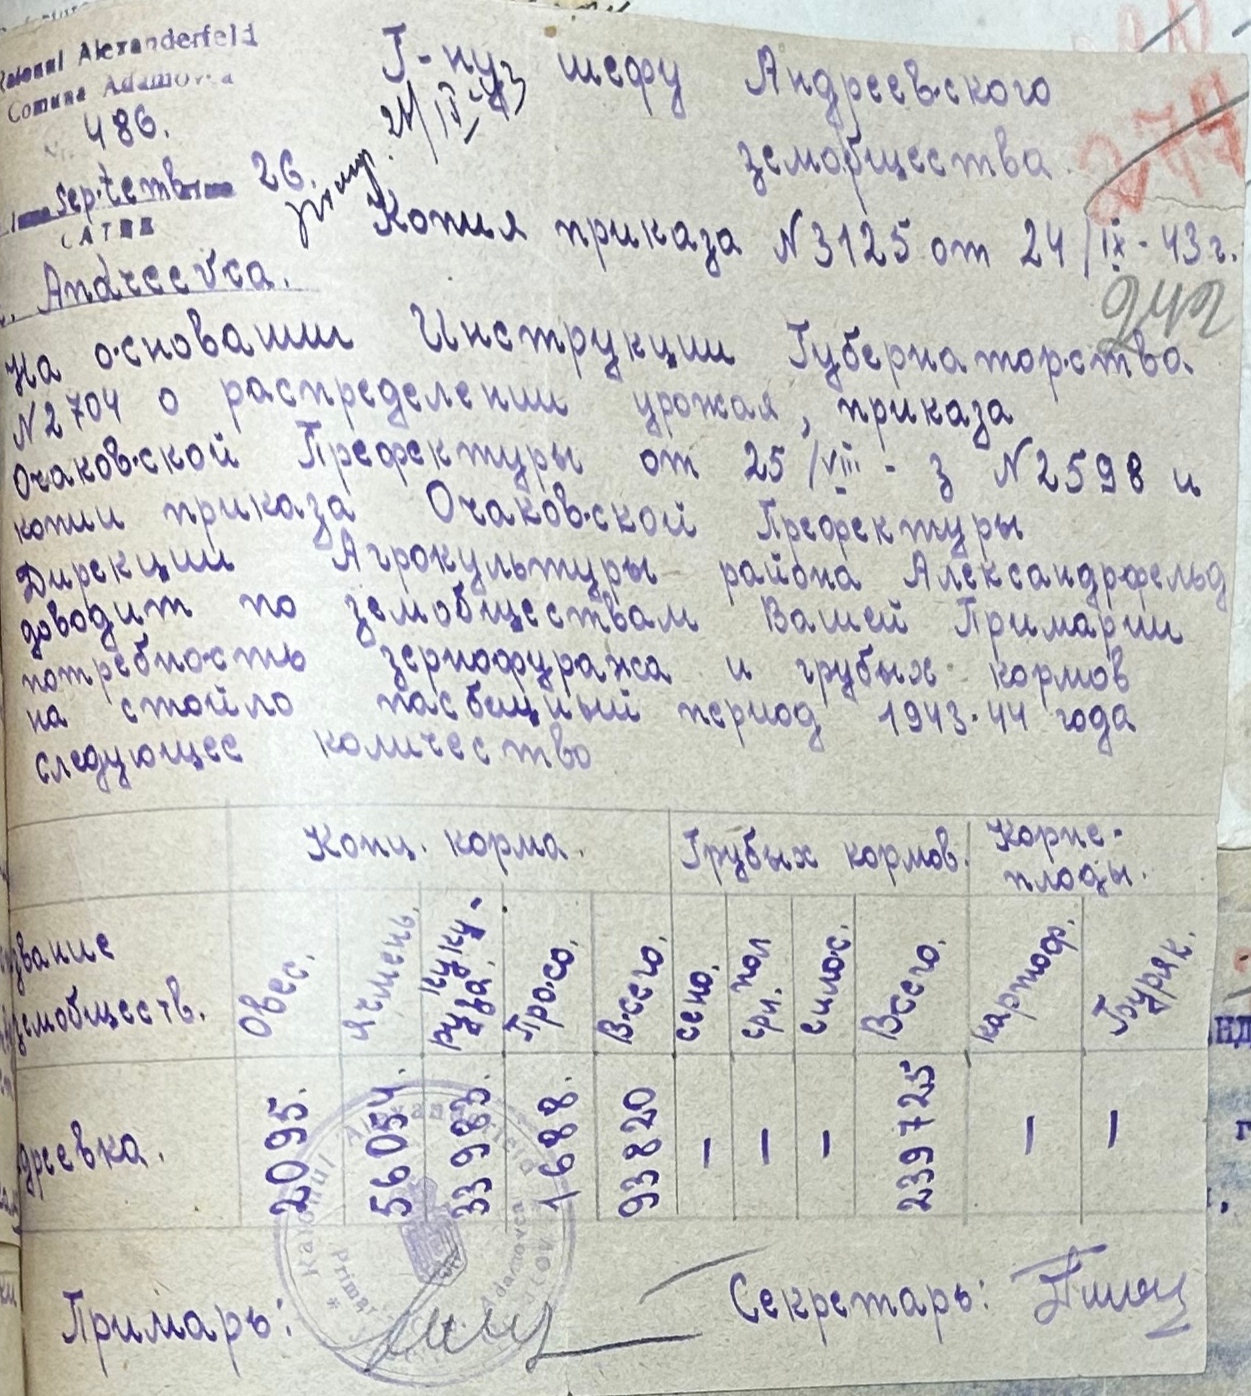 Raionul Alexanderfeld
Comuna Adamovca
486.
Septembrie 26.
CATRE
Andreevca.
Г-ну шефу Андреевского
земобщества.
24/IX-43
274
Копия приказа N3125 от 24/IX-43г.
242
На основании Инструкции Губернаторства
N2704 о распределении урожая, приказа
Очаковской Префектуры от 25/VIII-з N2598 и
копии приказа Очаковской Префектуры
Дирекции Агрокультуры района Александрфельд
доводит по земобществам Вашей Примарии
потребность зернофуража и грубых кормов
на стойло пасбищный период 1943-44 года
следующее количество
Конц. корма. Грубых кормов. Корне-
плоды.
звание
земобществ. Овес. Ячмень. куку-
руза. Просо. Всего. сено. пол
сри. силос. Всего. картоф. Буряк.
дреевка. 2095. 56054. 33983. 1688. 93820 – – – 239725 – –
Raionul Alexanderfeld
Primar
Adamovca
Примарь: Секретарь: